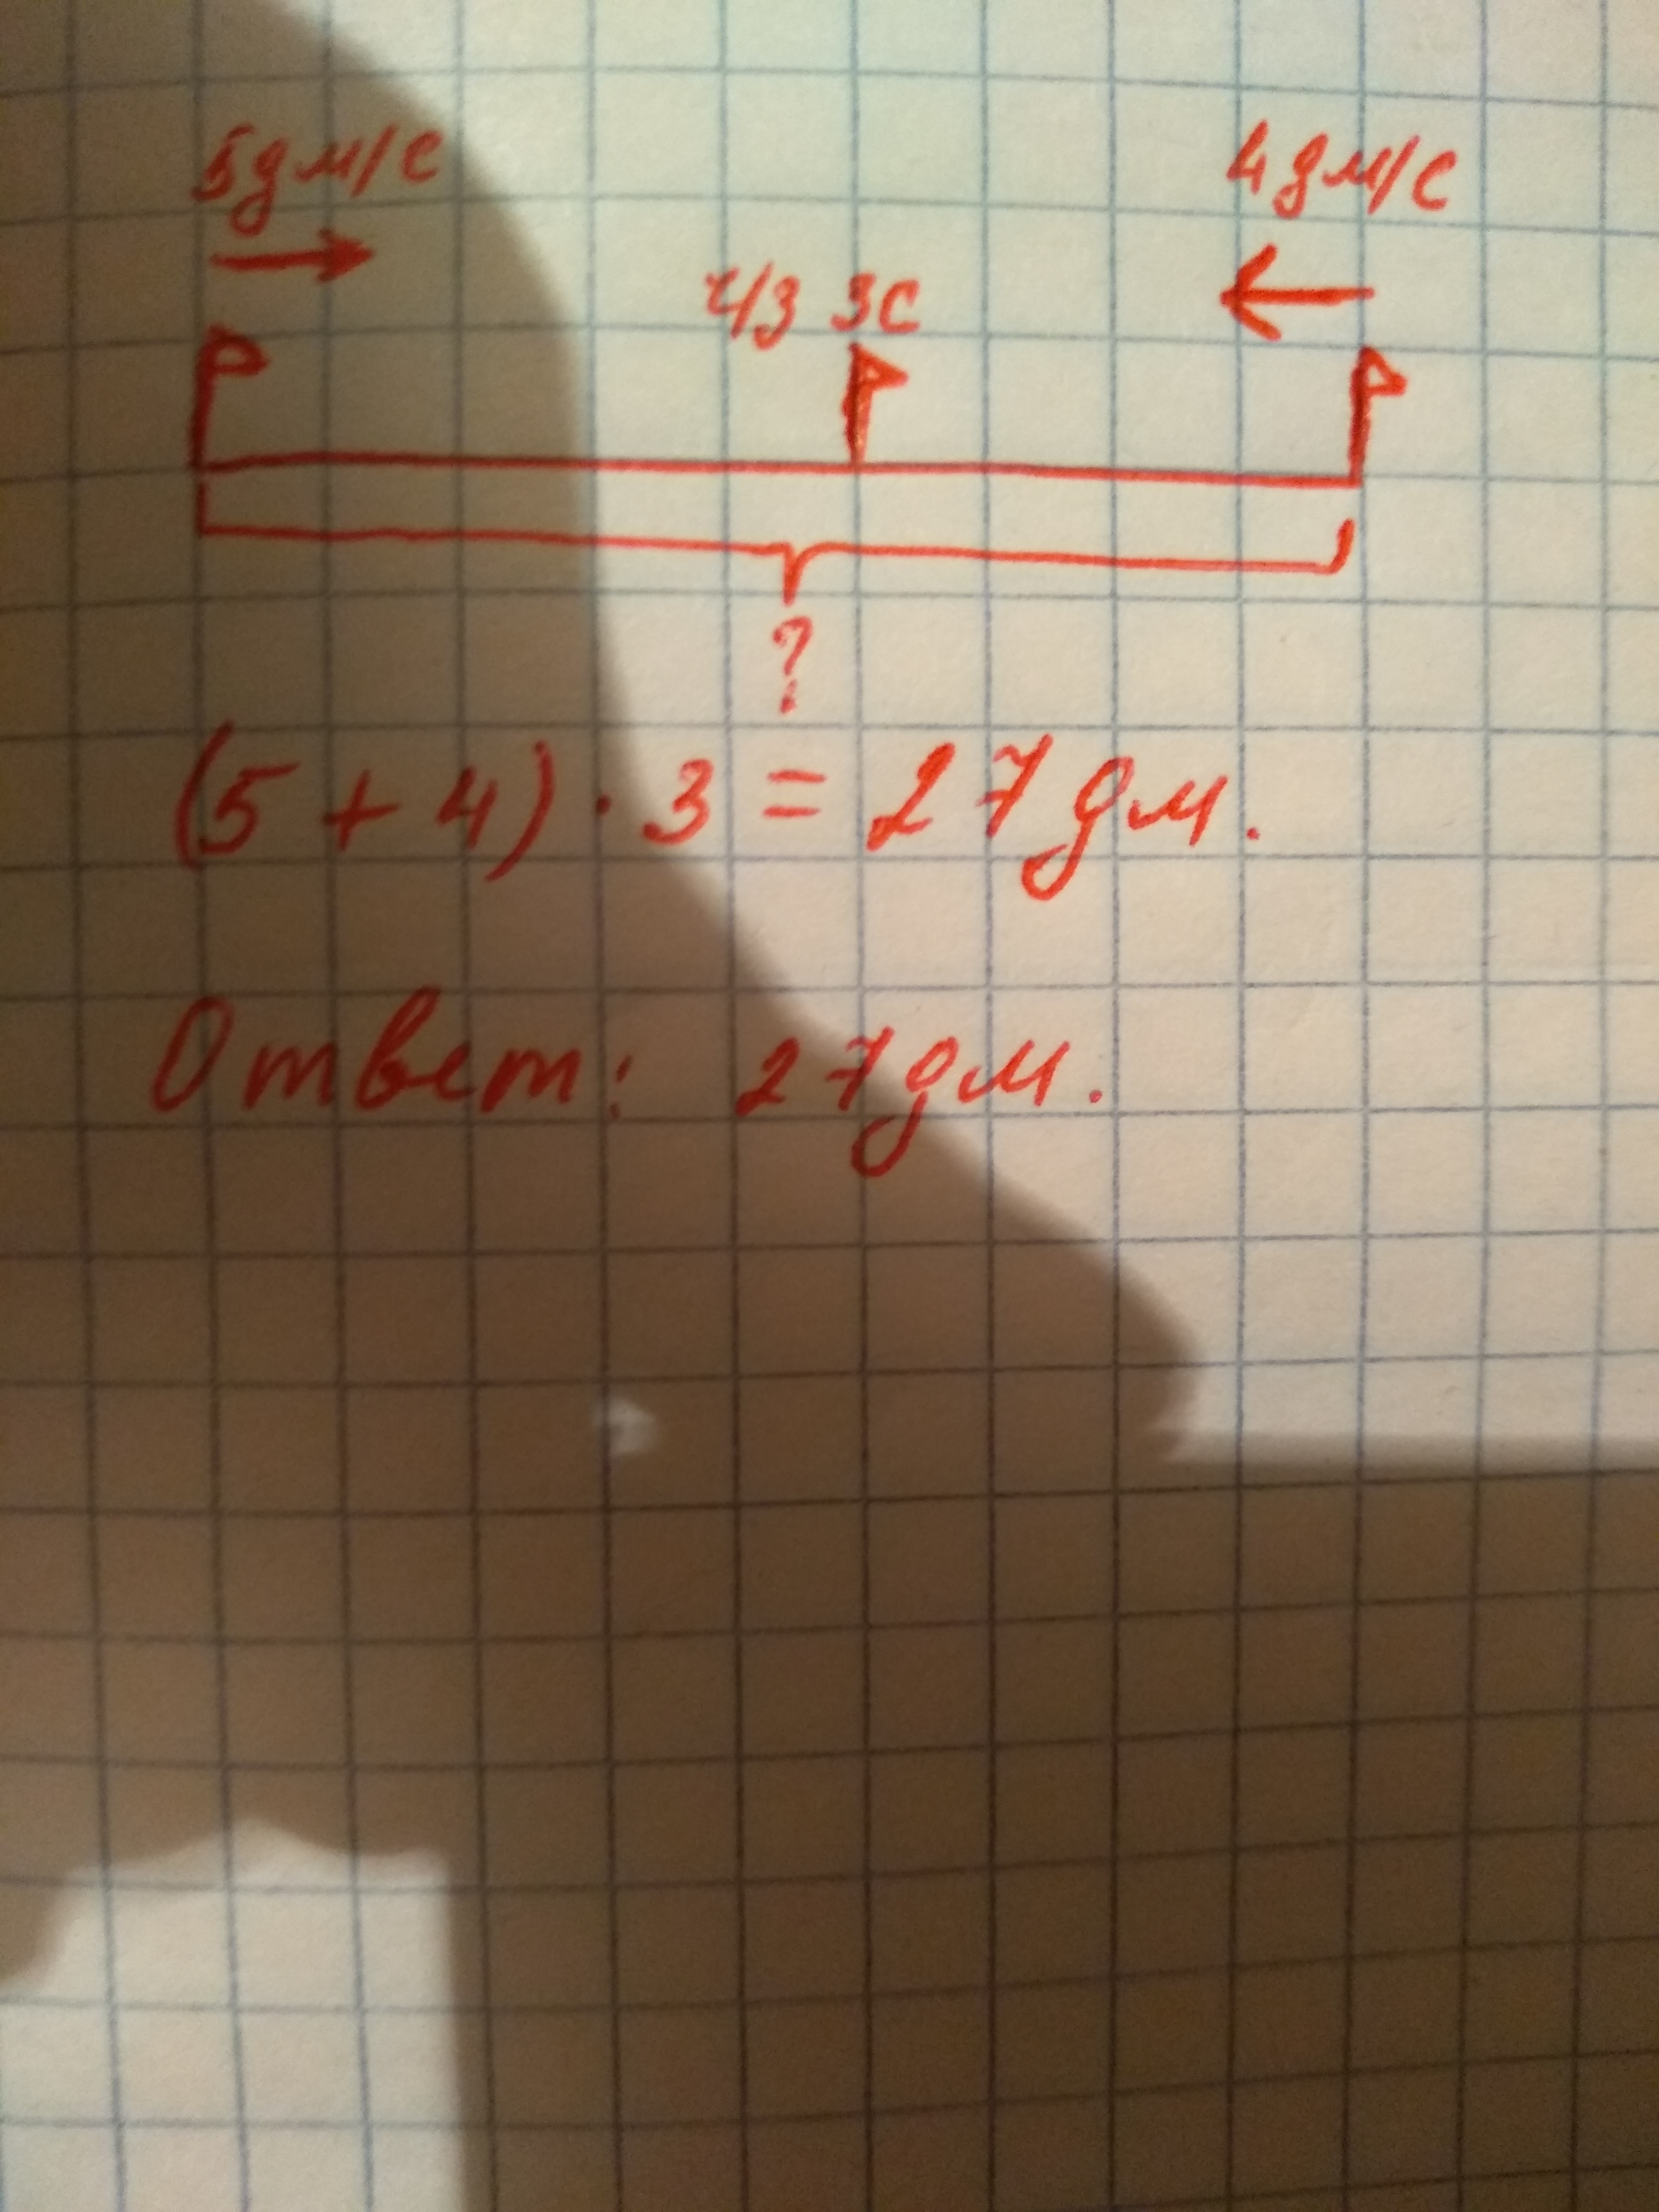 5дм/с 4дм/с
ч/з 3с
?
(5 + 4) · 3 = 27 дм.
Ответ: 27 дм.